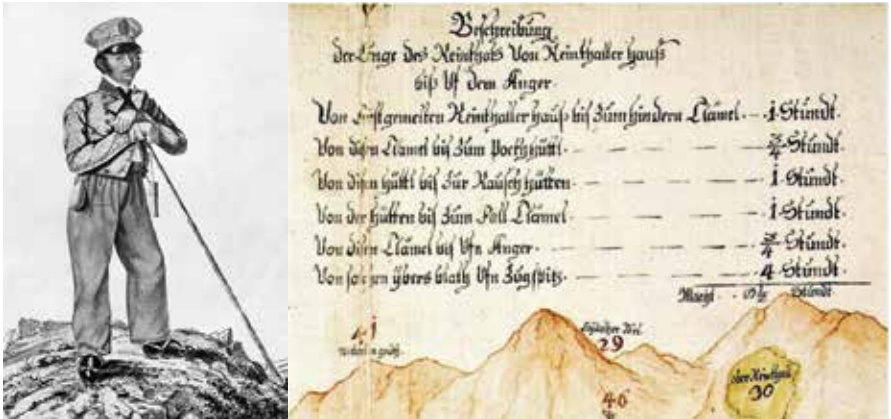 Beschreibung
der Länge des Reinthals Von Reinthaller Hauß
biß Uf dem Anger.
Von Erstgemelten Reinthaller Hauß biß Zum hindern Clämel. 1. Stundt.
Von disen Clämel biß Zum Pockhüttl. 3/4 Stundt.
Von disen hüttl biß Zur Rausch hütten 1 Stundt.
Von der hütten biß Zum Foll Clämel 1 Stundt.
Von disen Clämel biß Ufn Anger. 3/4 Stundt.
Von ybers blath Ufn Zugspitz. 4 Stundt.
Macht Stundt.
29
46
ober Reinthall
30